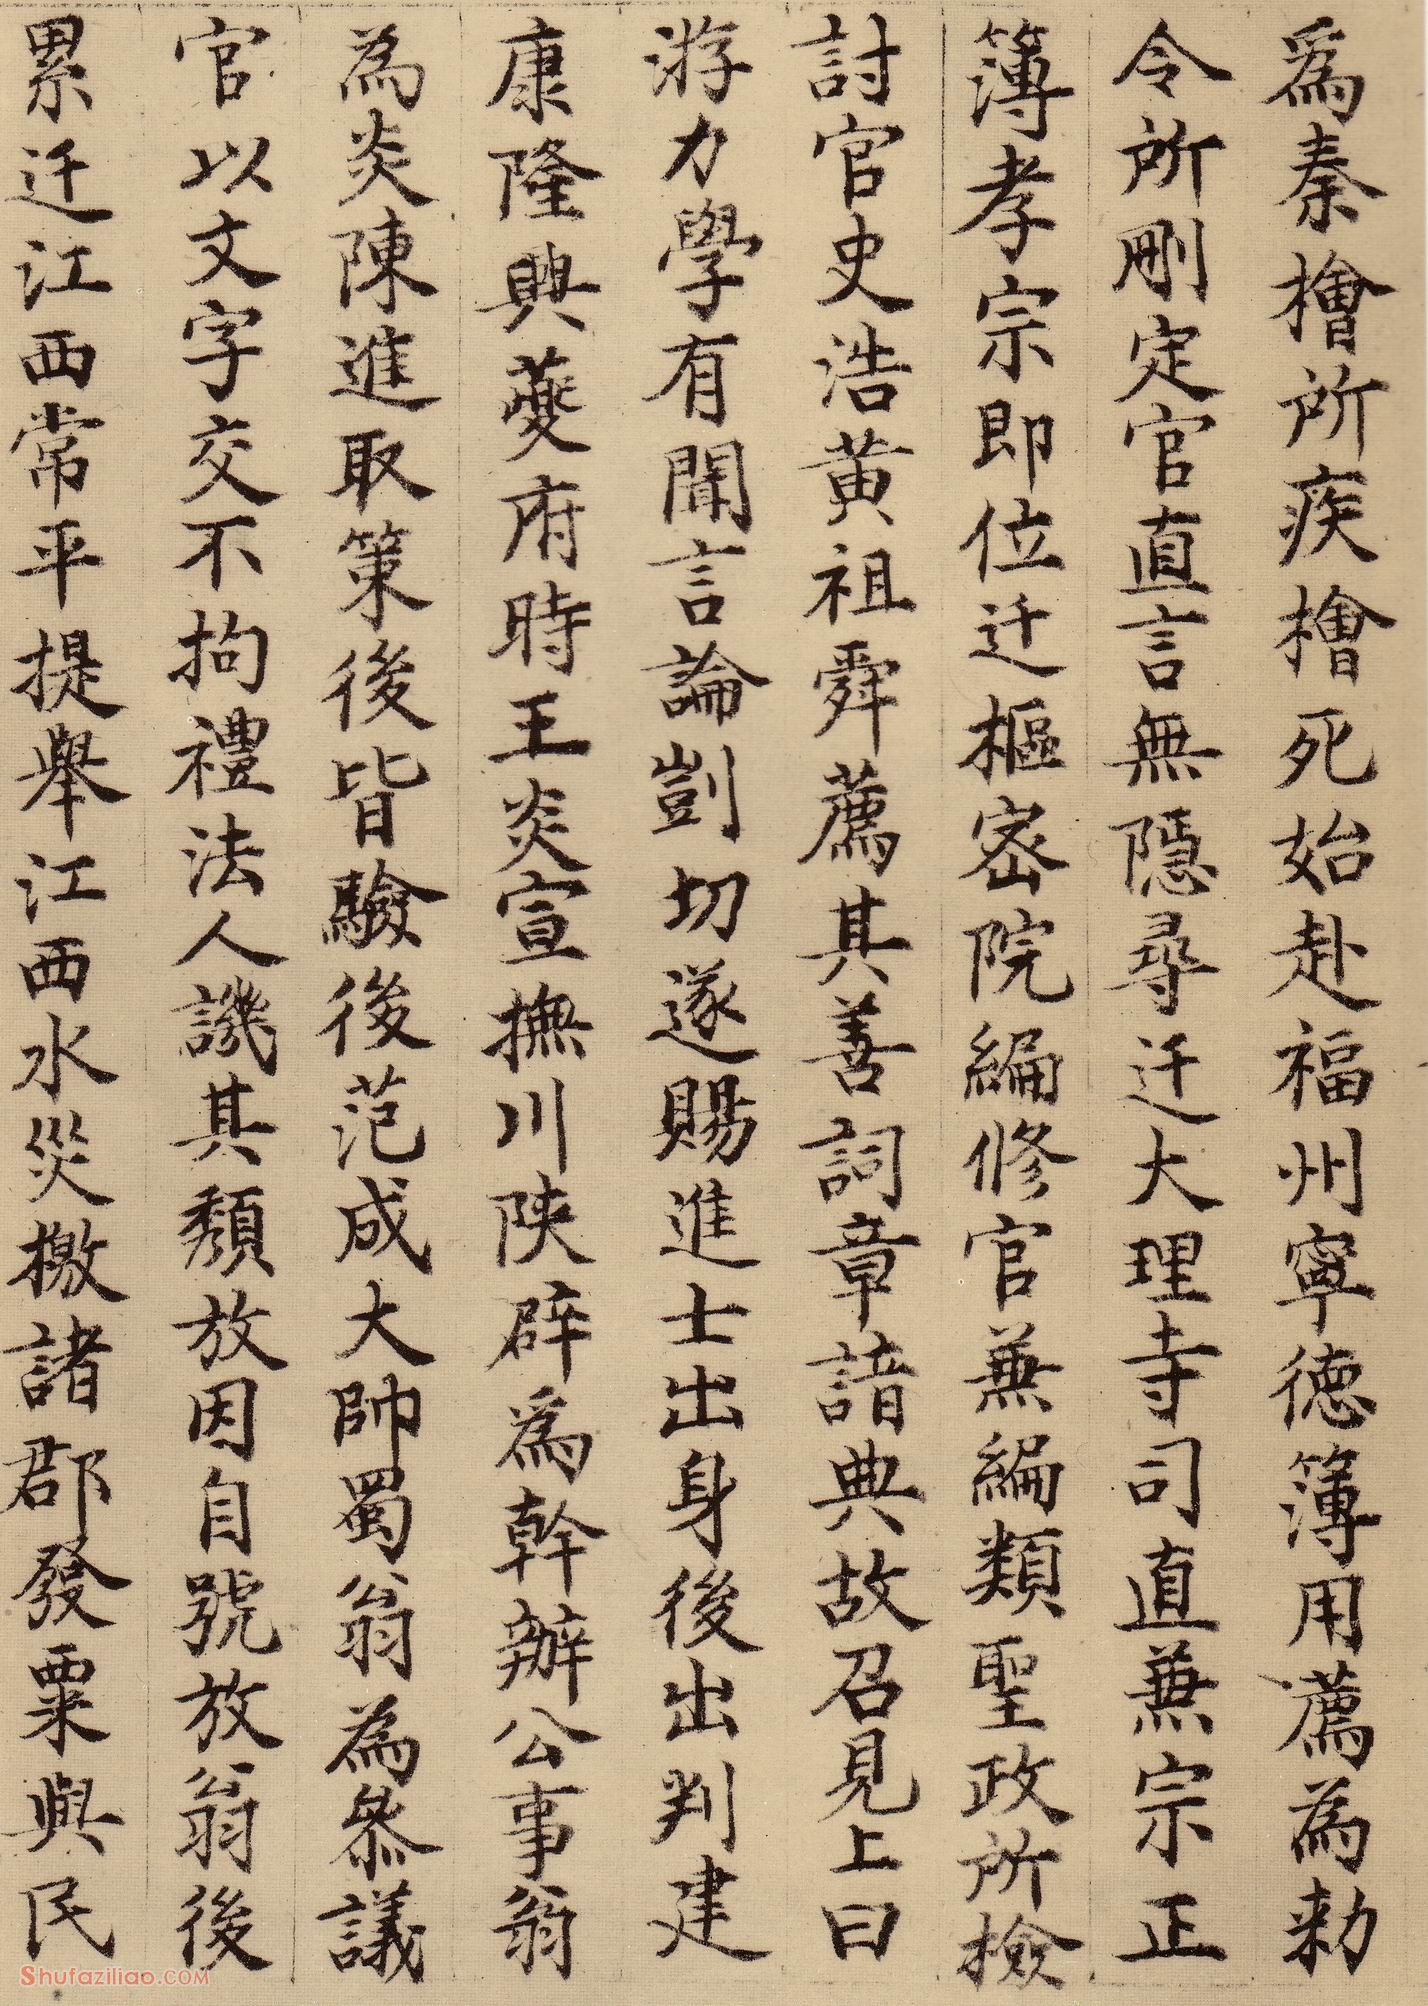 爲秦檜所疾檜死始赴福州寧徳簿用薦為勑
令所刪定官直言無隱尋迁大理寺司直兼宗正
簿孝宗即位迁樞密院編修官兼編類聖政所檢
討官史浩黄祖舜薦其善詞章諳典故召見上曰
游力學有聞言論剴切遂賜進士出身後出判建
康隆興夔府時王炎宣撫川陕辟爲幹辦公事翁
為炎陳進取策後皆驗後范成大帥蜀翁為叅議
官以文字交不拘禮法人譏其頽放因自號放翁後
累迁江西常平提舉江西水災檄諸郡發粟與民
Shufaziliao.COM